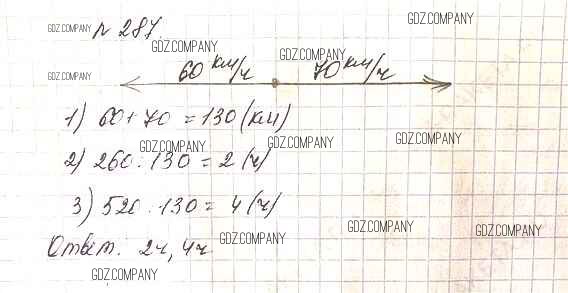 GDZ.COMPANY
№ 287
GDZ.COMPANY
GDZ.COMPANY
GDZ.COMPANY
GDZ.COMPANY
60 км/ч 70 км/ч
1) 60 + 70 = 130 (км)
GDZ.COMPANY GDZ.COMPANY GDZ.COMPANY
2) 260 : 130 = 2 (ч)
3) 520 : 130 = 4 (ч)
GDZ.COMPANY GDZ.COMPANY GDZ.COMPANY
Ответ. 2ч, 4ч
GDZ.COMPANY